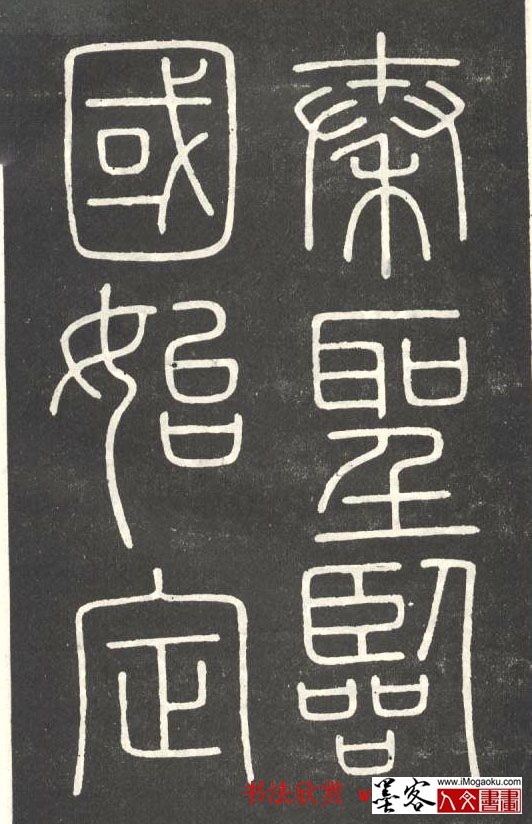 秦聖臨
國始定
书法欣赏 w
墨客 www.iMogaoku.com
人文書畫